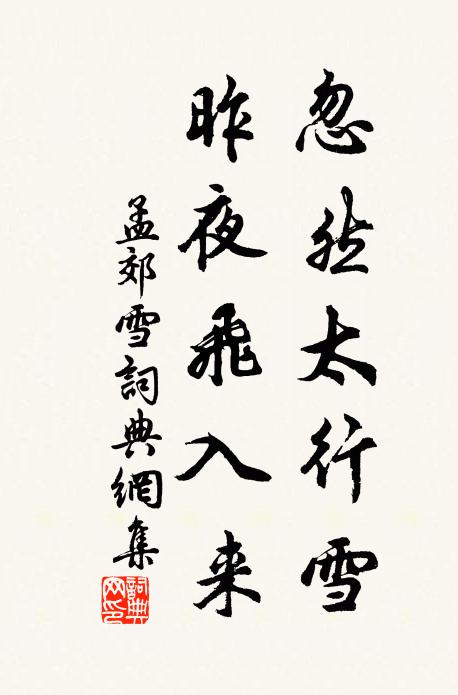 忽然太行雪
昨夜飛入来
孟郊雪詞典網集
詞典网印